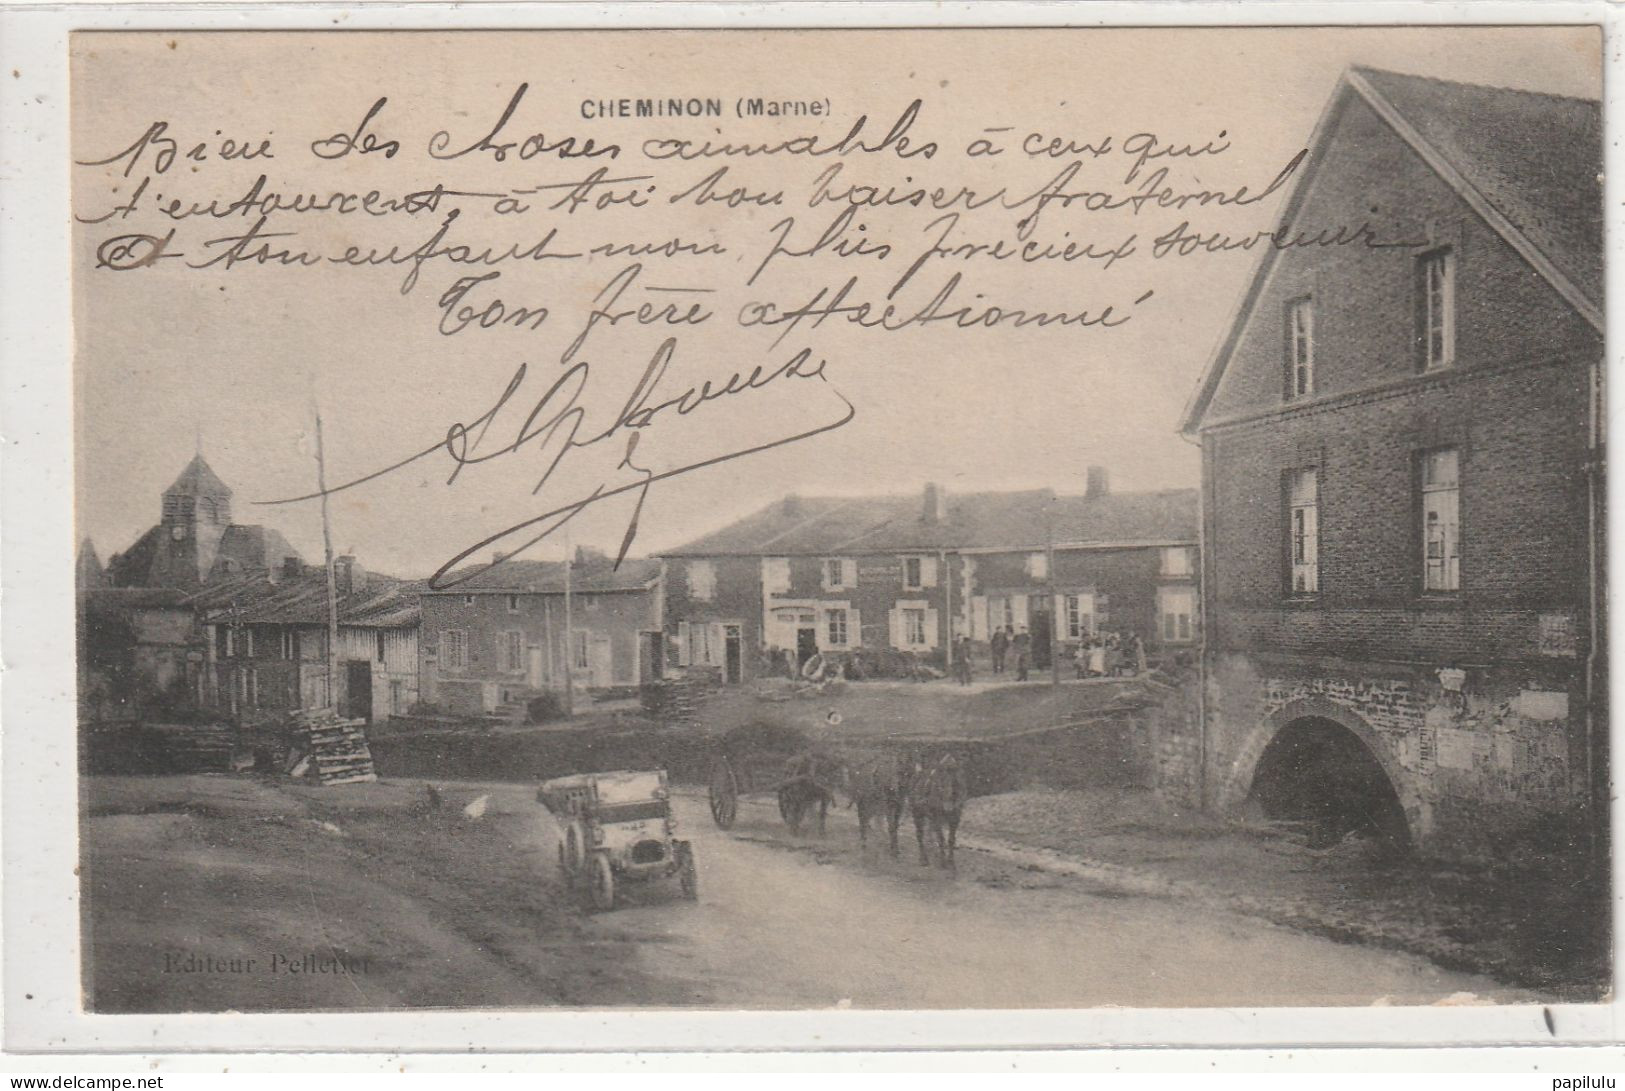 CHEMINON (Marne)
Bien des choses aimables à ceux qui
t'entourent, à toi bon baiser fraternel
et ton enfant mon plus précieux souvenir
Ton frère affectionné
Alphonse
Editeur Pelletier
papilulu